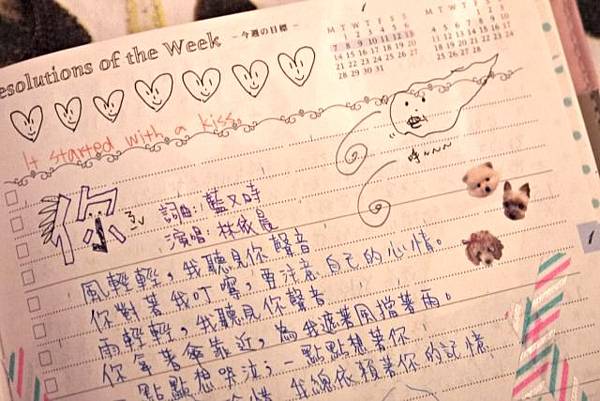 esolutions of the Week －今週の目標－
M T W T F S S
7 8 9 10 11 12 13
14 15 16 17 18 19 20
21 22 23 24 25 26 27
28 29 30 31
M T W T F S S
It started with a kiss
你
詞曲：藍又時
演唱：林依晨
風輕輕，我聽見你聲音
你對著我叮嚀，要注意自己的心情。
雨輕輕，我聽見你聲音
你拿著傘靠近，為我遮著風擋著雨。
一點點想哭泣，一點點想著你
我總依賴著你的記憶